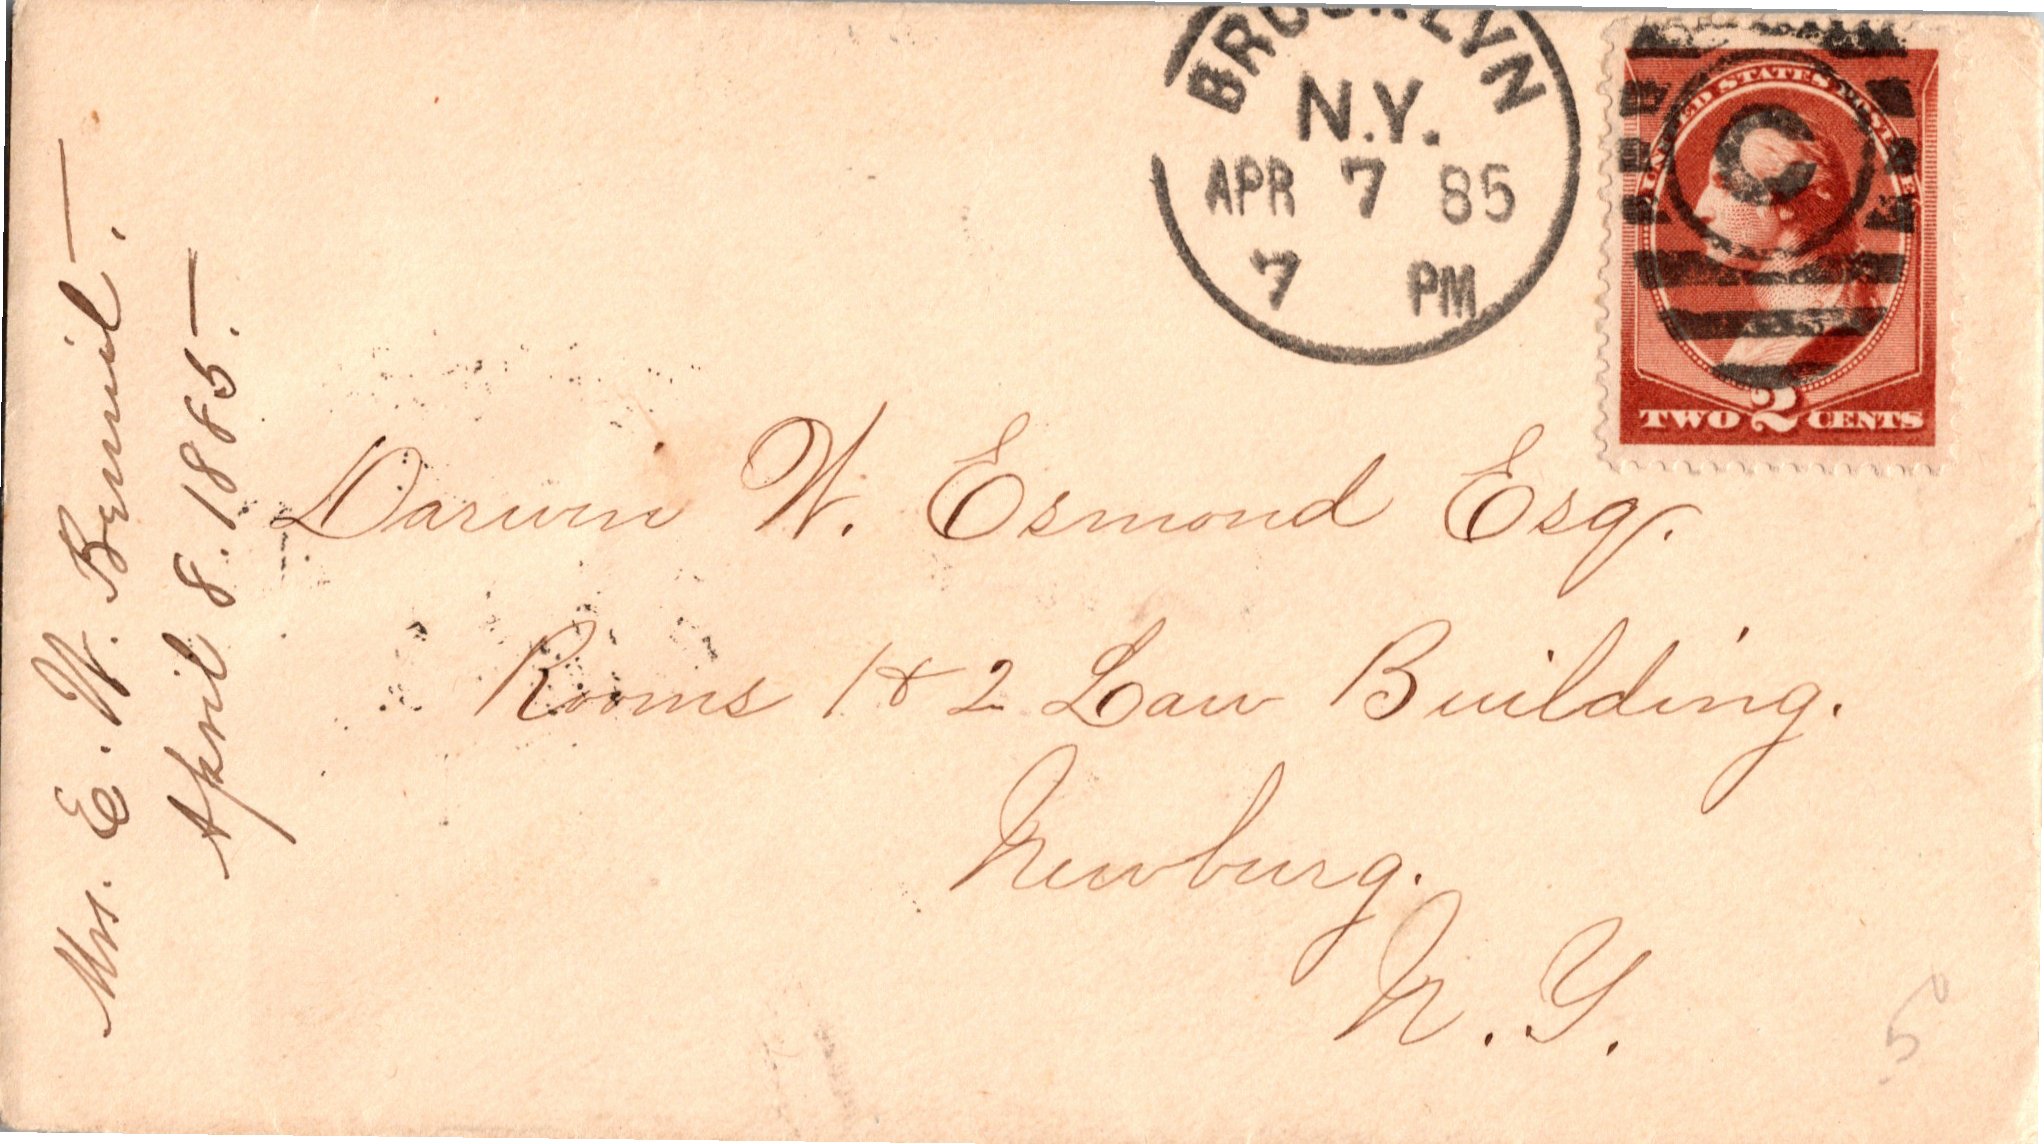 BROOKLYN
N.Y.
APR 7 85
7 PM
UNITED STATES POSTAGE
C
TWO 2 CENTS
Darwin W. Esmond Esq.
Rooms 1 & 2 Law Building.
Newburg.
N. Y.
Mrs. E. W.
April 8. 1885.
5